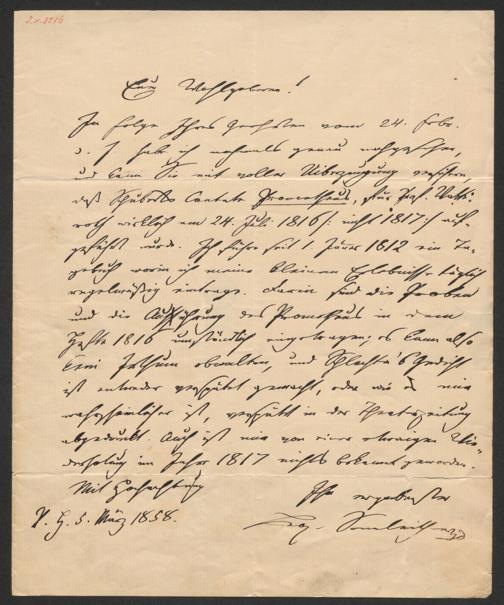 Euer Wohlgeboren!
In Folge Ihres Geehrten vom 24. Febr.
d. J. hab ich nochmals genau nachgesehen,
und kann Sie mit voller Überzeugung versichern
daß Schuberts Cantate Prometheus, für Prof. Watte-
roth wirklich am 24. Juli 1816 /: nicht 1817 :/ auf-
geführt wurde. Ich führe seit 1. Jäner 1812 ein Ta-
gebuch worin ich meine kleinen Erlebnisse täglich
regelmäßig eintrage. Darin sind die Proben
und die Aufführung des Prometheus in dem
Hefte 1816 umständlich eingetragen; es kann also
kein Irrthum obwalten, und Schlechta's Gedicht
ist entweder verspätet gemacht, oder wie es mir
wahrscheinlicher ist, verspätet in der Theaterzeitung
abgedruckt. Auch ist mir von einer etwaigen Wie-
derholung im Jahre 1817 nichts bekannt geworden.
Mit Hochachtung
Ihr ergebenster
V. H. 5. März 1858.
Sonnleithner